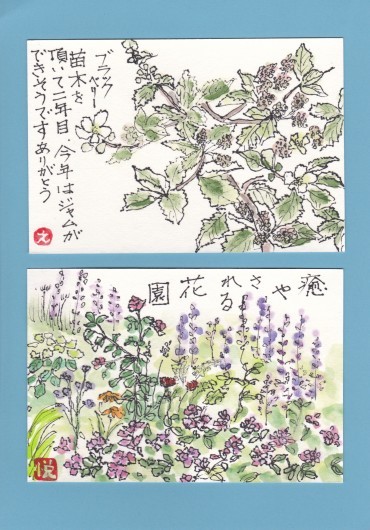 ブラック
ベリー
苗木を
頂いて二年目 今年はジャムが
できそうですありがとう
え
癒やされる花園
悦